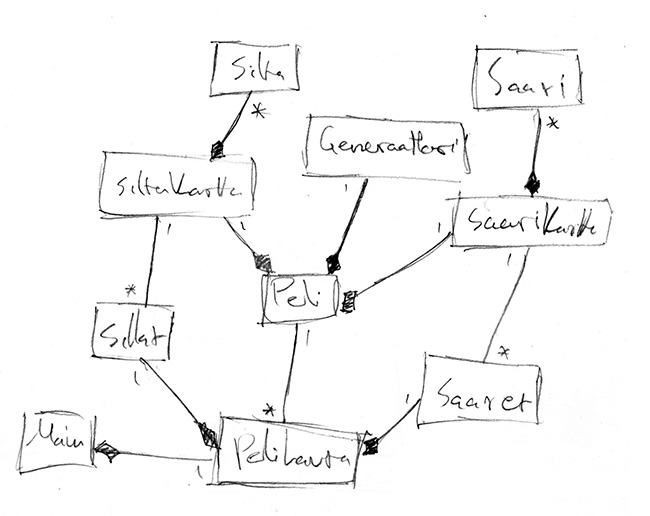 Silta
Saari
*
*
Generaattori
SiltaKartta
1
SaariKartta
1
1
1
1
Peli
*
Sillat
1
*
1
1
Saaret
*
Main
Pelilauta
1